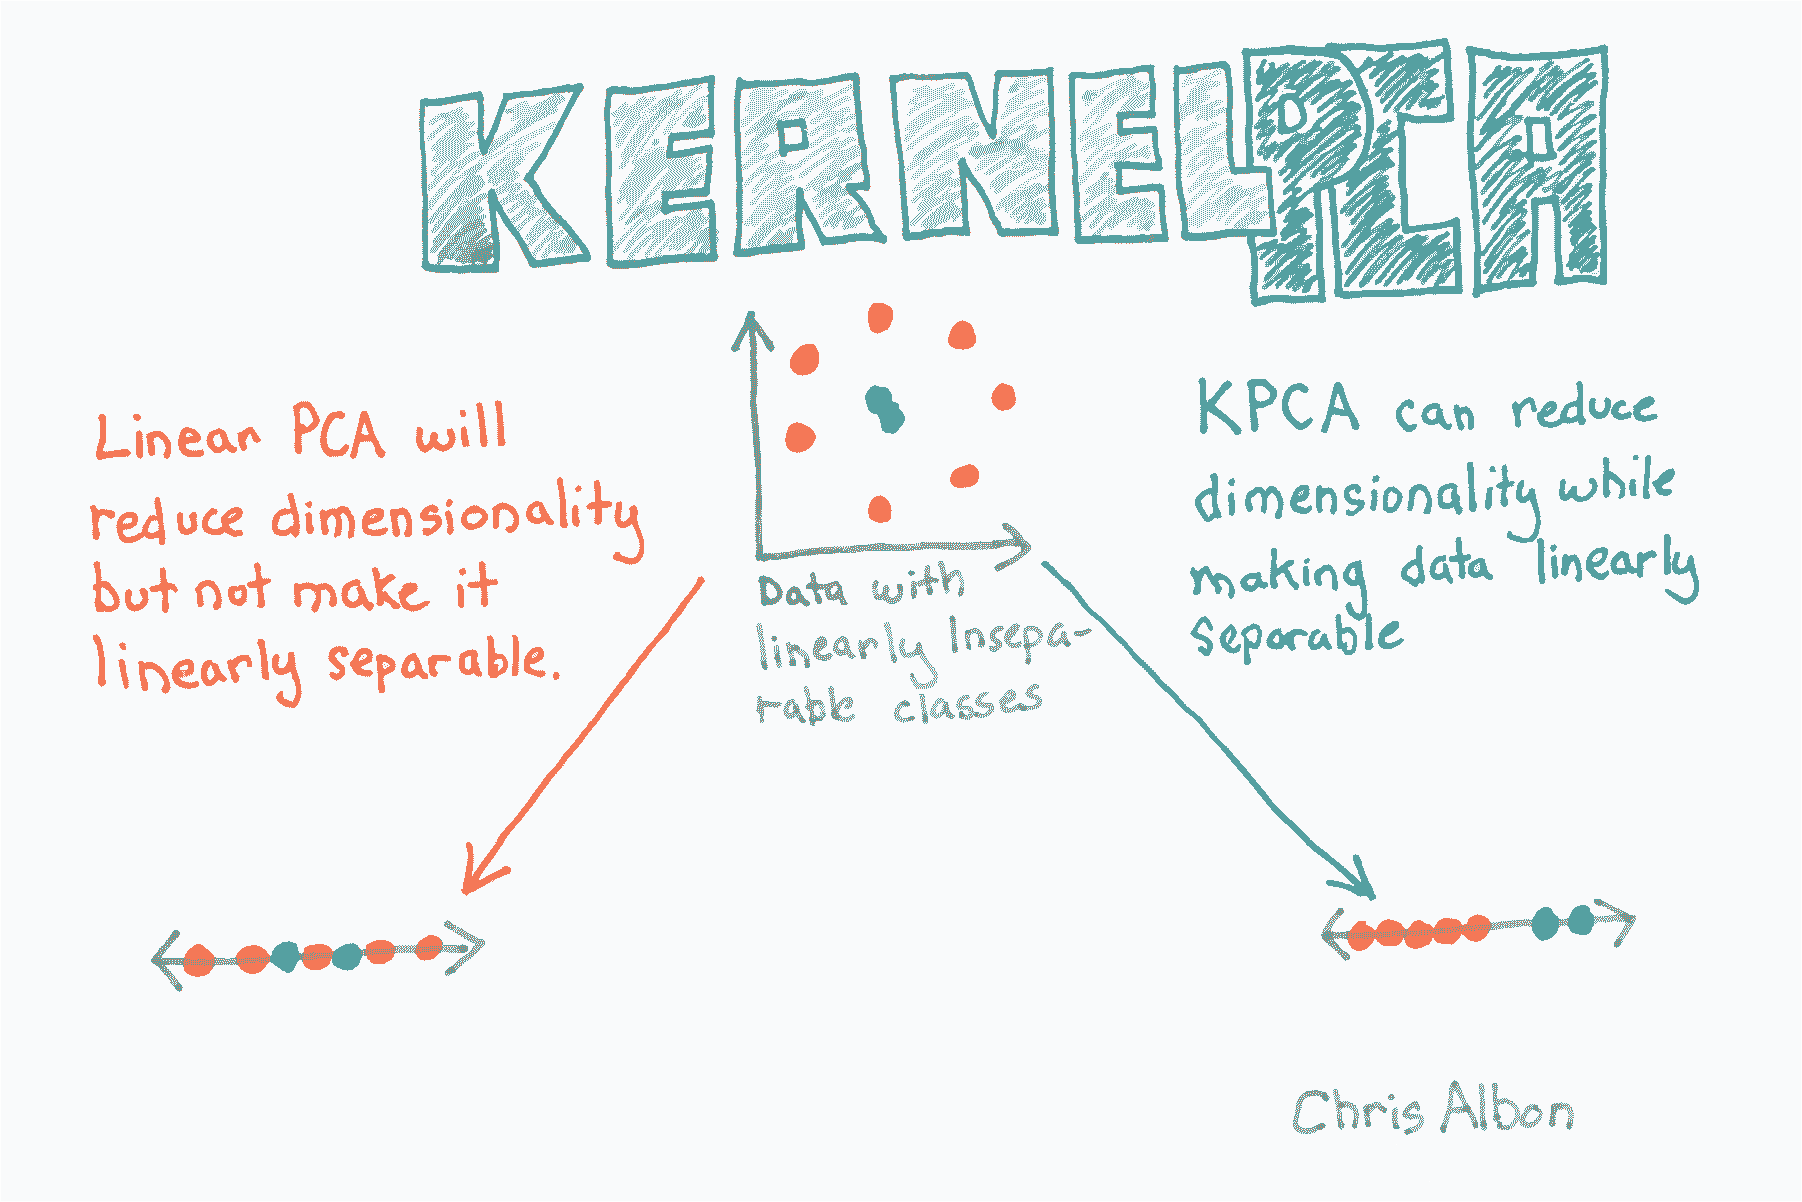 KERNEL PCA
Linear PCA will
reduce dimensionality
but not make it
linearly separable.
Data with
linearly Insepa-
rable classes
KPCA can reduce
dimensionality while
making data linearly
separable
Chris Albon